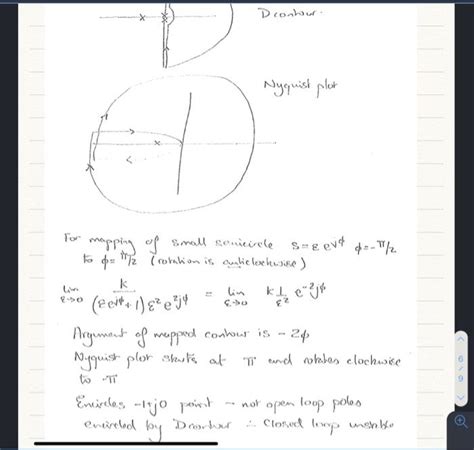 D contour.
Nyquist plot
For mapping of small semicircle s = ε e^jφ φ = -π/2
to φ = π/2 (rotation is anticlockwise)
lim ε→0 k / (εe^jφ + 1) ε² e^2jφ = lim ε→0 k 1/ε² e^-2jφ
Argument of mapped contour is -2φ
Nyquist plot starts at π and rotates clockwise
to -π
Encircles -1+j0 point - not open loop poles
encircled by D contour ∴ Closed loop unstable
6
/
9